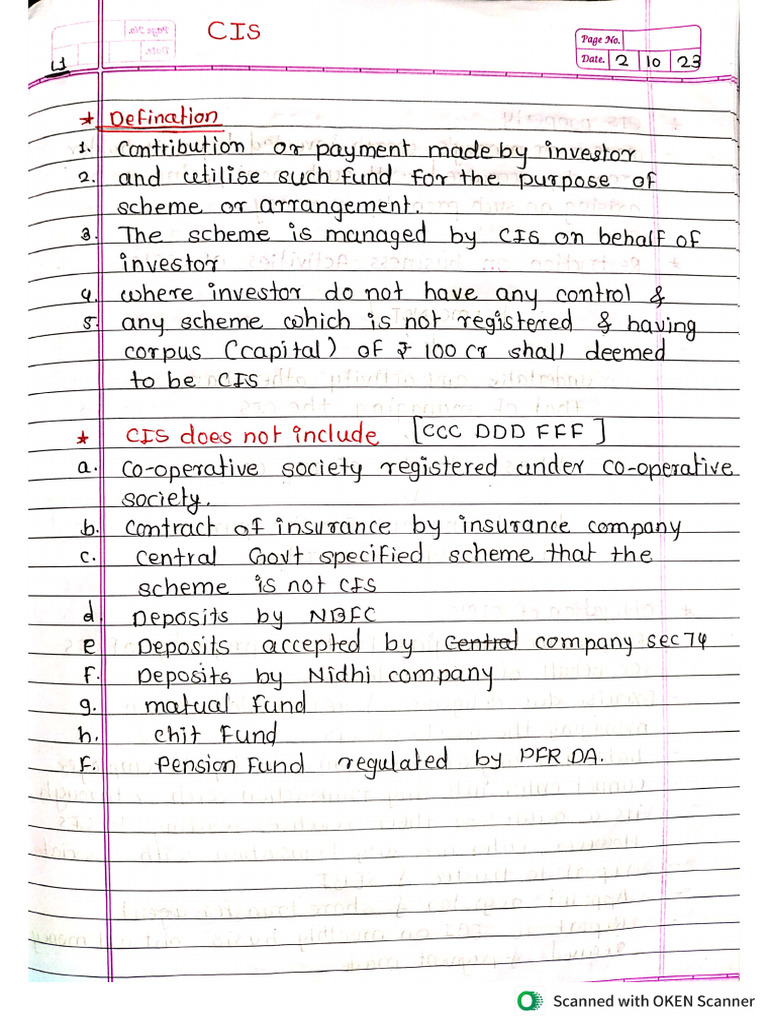 CIS
Page No.
Date. 2 10 23
L1
* Defination
1. Contribution or payment made by investor
2. and utilise such fund for the purpose of
scheme or arrangement.
3. The scheme is managed by CIS on behalf of
investor
4. where investor do not have any control &
5. any scheme which is not registered & having
corpus (capital) of ₹ 100 cr shall deemed
to be CIS
* CIS does not include [CCC DDD FFF]
a. co-operative society registered under co-operative
society.
b. contract of insurance by insurance company
c. central Govt specified scheme that the
scheme is not CIS
d. Deposits by NBFC
e Deposits accepted by Central company sec 74
f. Deposits by Nidhi company
g. matual fund
h. chit Fund
F. Pension Fund regulated by PFRDA.
Scanned with OKEN Scanner